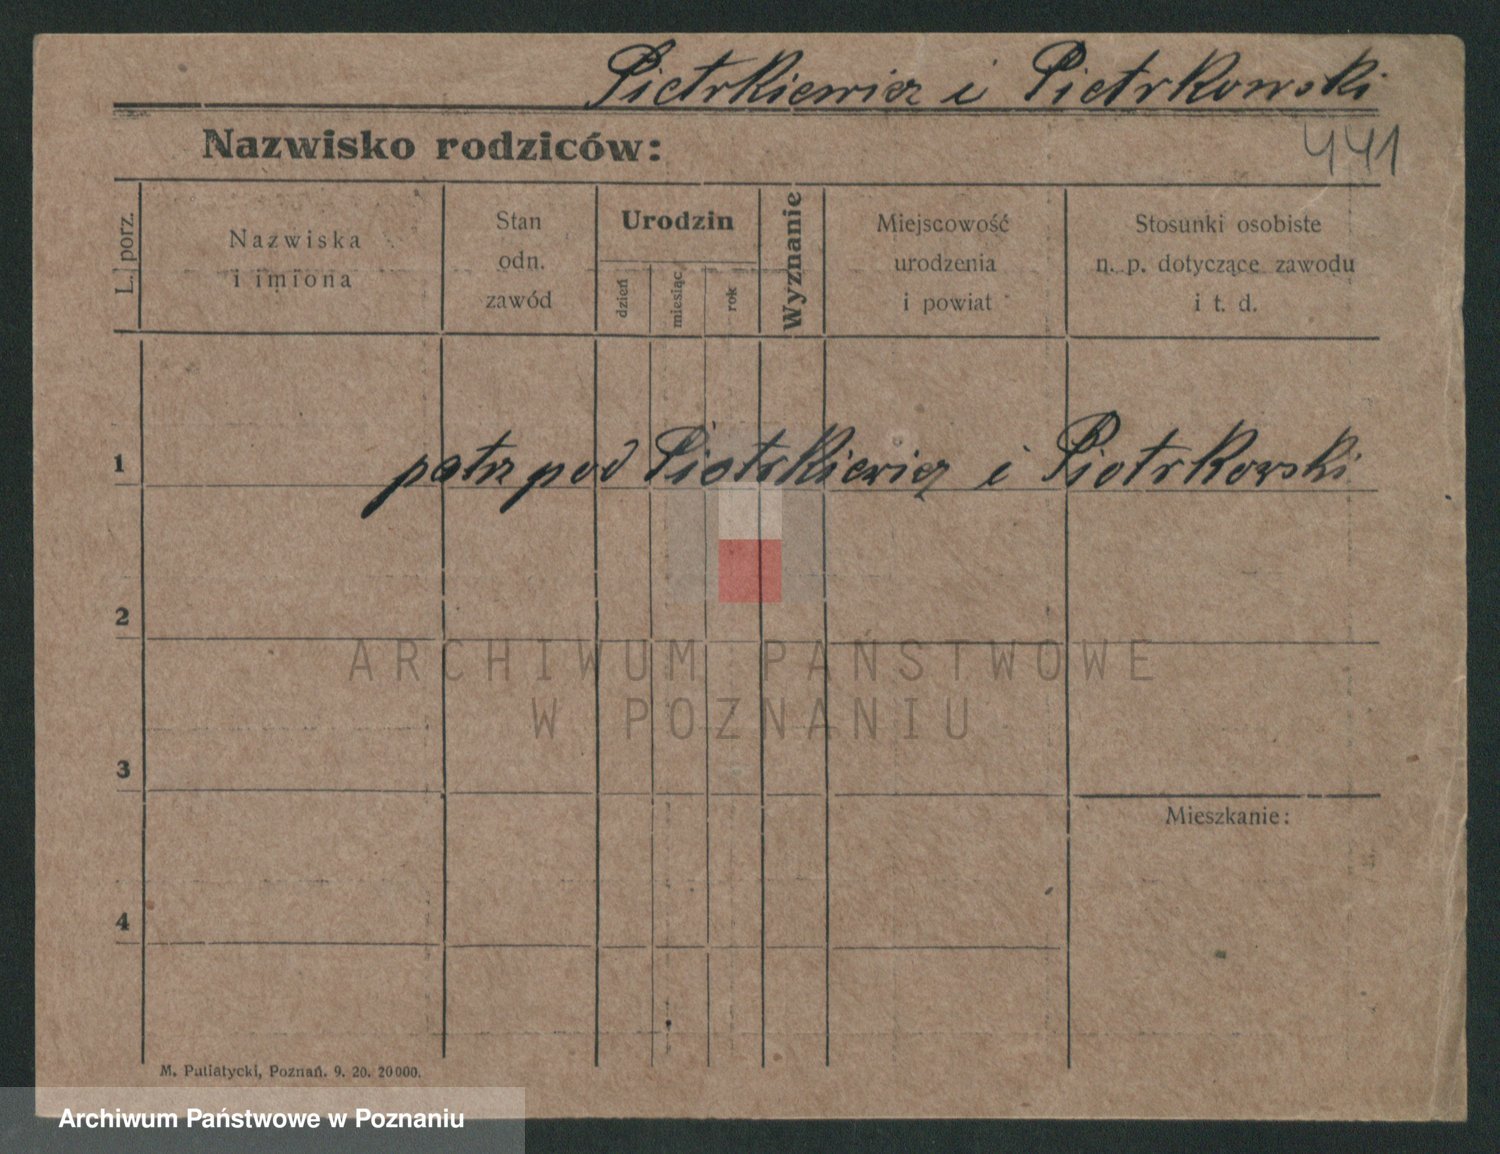 Pietrkiewicz i Pietrkowski
Nazwisko rodziców:
441
L. porz.
Nazwiska
i imiona
Stan
odn.
zawód
Urodzin
dzień
miesiąc
rok
Wyznanie
Miejscowość
urodzenia
i powiat
Stosunki osobiste
n. p. dotyczące zawodu
i t. d.
1
patrz pod Piotrkiewicz i Piotrkowski
2
ARCHIWUM PAŃSTWOWE
W POZNANIU
3
Mieszkanie:
4
M. Putiatycki, Poznań. 9. 20. 20000.
Archiwum Państwowe w Poznaniu